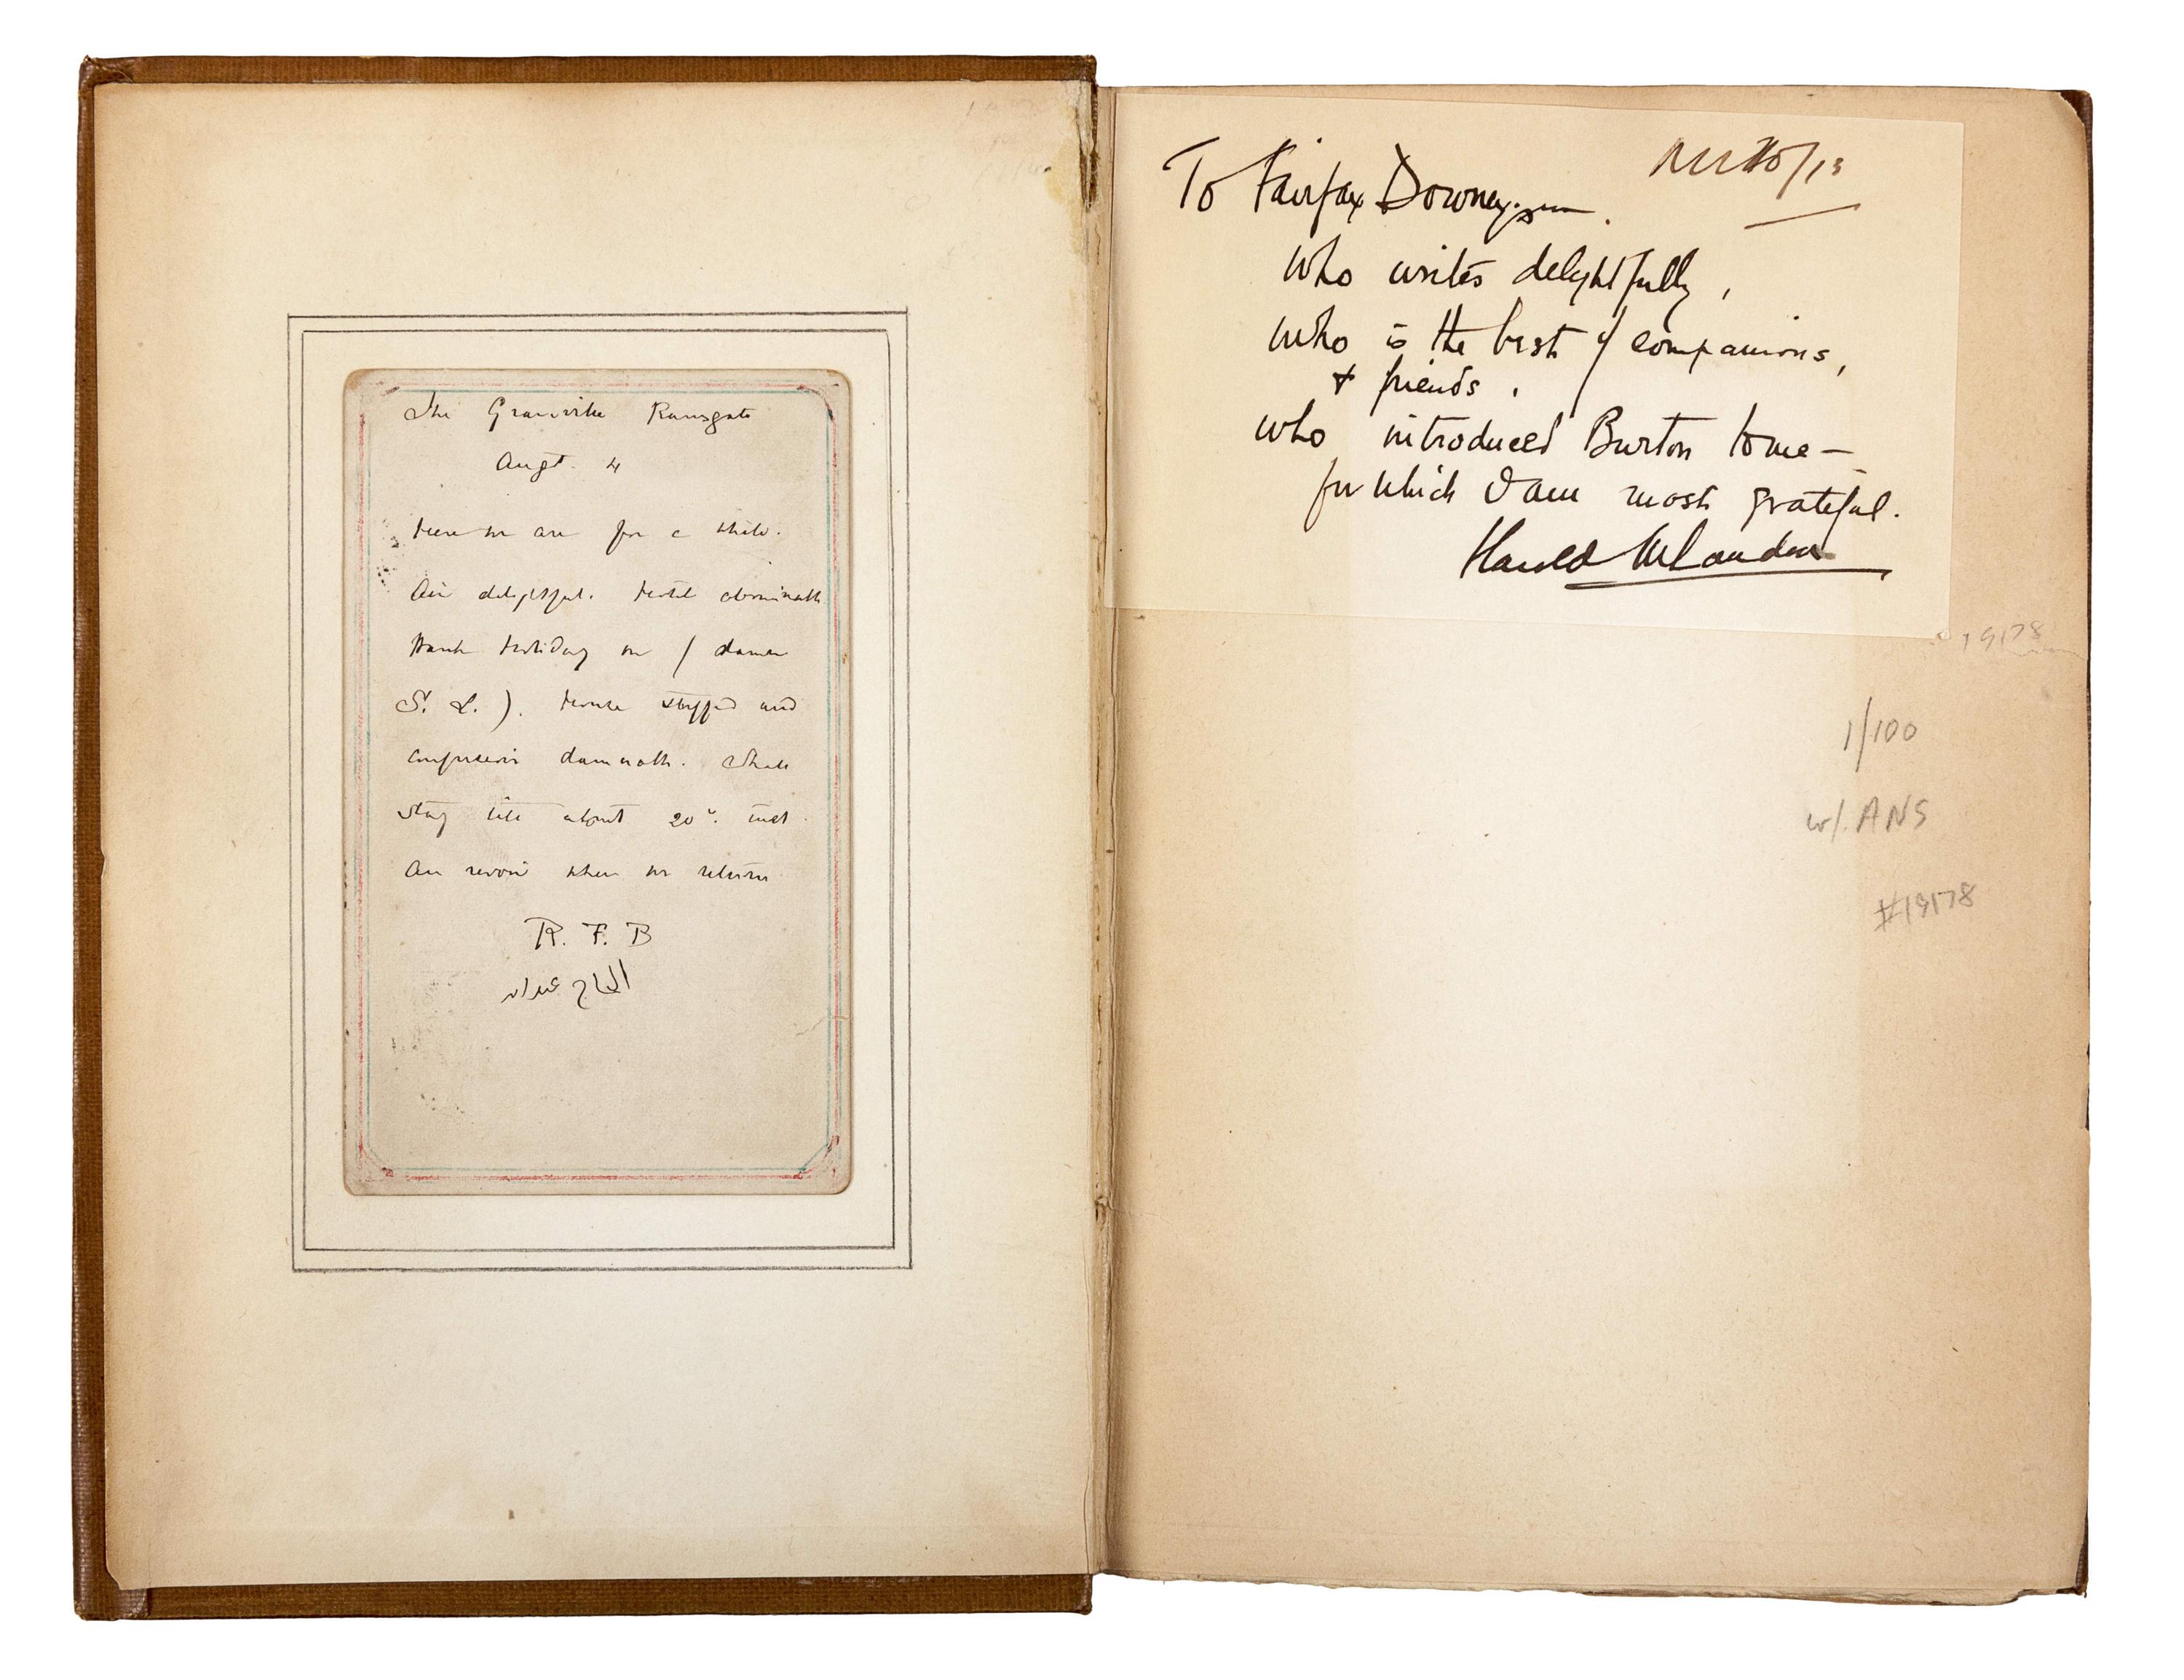 The Granville Ramsgate
Augt. 4
Here we are for a while.
Air delightful. Hotel abominable
Bank Holiday on (damn
S. L.). House stuffed and
confusion damnable. Shall
stay till about 20th. inst.
Au revoir when we return
R. F. B
الحاج عبدالله
To Fairfax Downey
who writes delightfully,
who is the best of companions,
+ friends.
who introduced Burton to me—
for which I am most grateful.
Harold McLandon
19178
1/100
w/. ANS
#19178